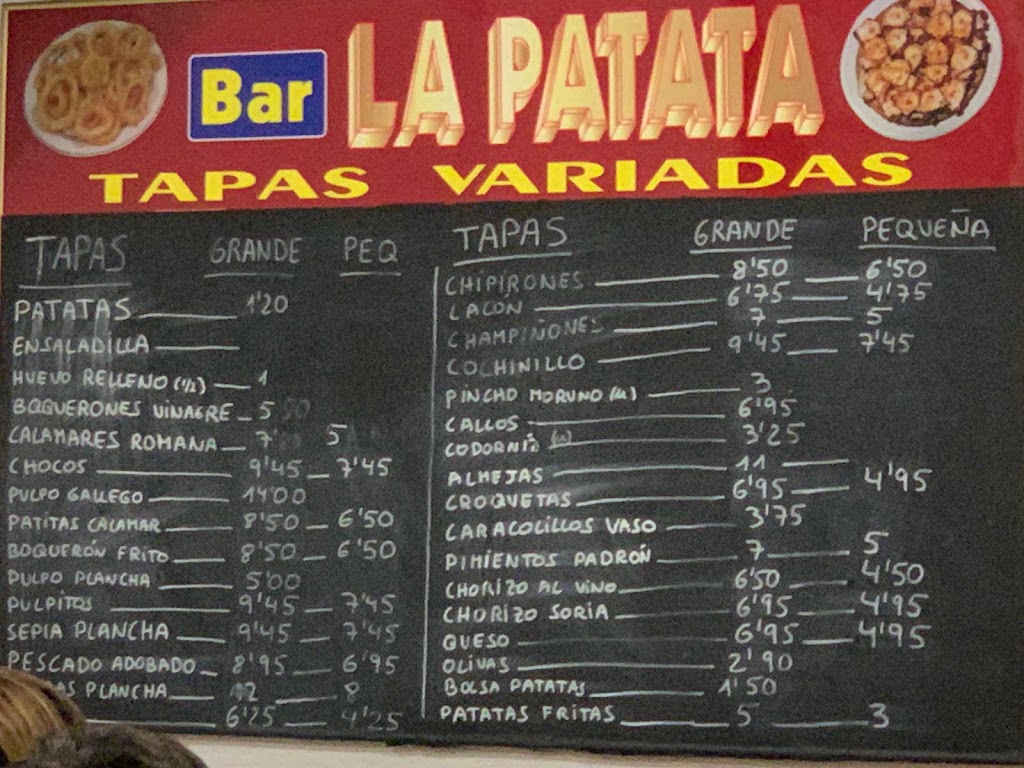 Bar LA PATATA
TAPAS VARIADAS
TAPAS GRANDE PEQ
PATATAS 1'20
ENSALADILLA
HUEVO RELLENO (1/2) 1
BOQUERONES VINAGRE 5
CALAMARES ROMANA 7 5
CHOCOS 9'45 7'45
PULPO GALLEGO 14'00
PATITAS CALAMAR 8'50 6'50
BOQUERÓN FRITO 8'50 6'50
PULPO PLANCHA 5'00
PULPITOS 9'45 7'45
SEPIA PLANCHA 9'45 7'45
PESCADO ADOBADO 8'95 6'95
PLANCHA 12 8
6'25 4'25
TAPAS GRANDE PEQUEÑA
CHIPIRONES 8'50 6'50
LACON 6'75 4'75
CHAMPIÑONES 7 5
COCHINILLO 9'45 7'45
PINCHO MORUNO (u) 3
CALLOS 6'95
CODORNIZ (u) 3'25
ALMEJAS 11
CROQUETAS 6'95 4'95
CARACOLILLOS VASO 3'75
PIMIENTOS PADRÓN 7 5
CHORIZO AL VINO 6'50 4'50
CHORIZO SORIA 6'95 4'95
QUESO 6'95 4'95
OLIVAS 2'90
BOLSA PATATAS 1'50
PATATAS FRITAS 5 3